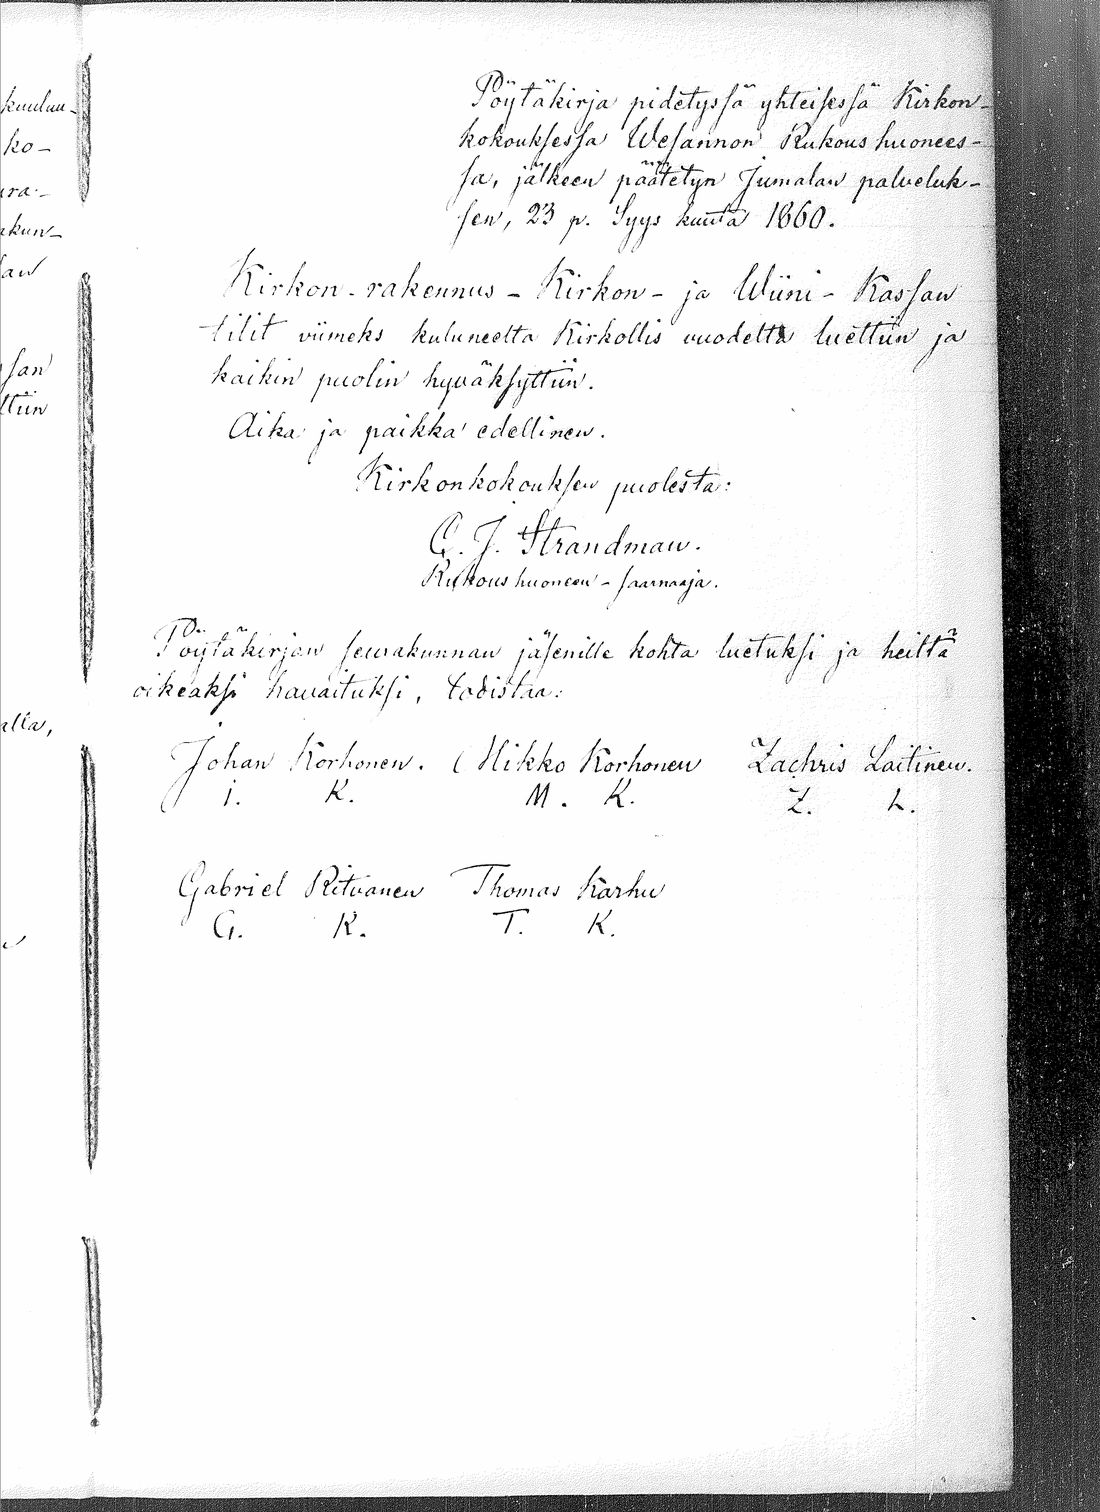 kuuluu-
ko-
ura-
akun-
san
ttiin
alla,
Pöytäkirja pidetyssä yhteisessä Kirkon-
kokouksessa Wesannon Rukoushuonees-
sa, jälkeen päätetyn Jumalan palveluk-
sen, 23 p. Syys kuuta 1860.
Kirkon-rakennus- Kirkon- ja Wiini- Kassan
tilit viimeks kuluneelta Kirkollis vuodelta luettiin ja
kaikin puolin hyväksyttiin.
Aika ja paikka edellinen.
Kirkonkokouksen puolesta:
C. J. Strandman.
Rukoushuoneen-saarnaaja.
Pöytäkirjan seurakunnan jäsenille kohta luetuksi ja heiltä
oikeaksi havaituksi, todistaa:
Johan Korhonen. Mikko Korhonen Zachris Laitinen.
I. K. M. K. Z. L.
Gabriel Ritvanen Thomas Karhu
G. R. T. K.